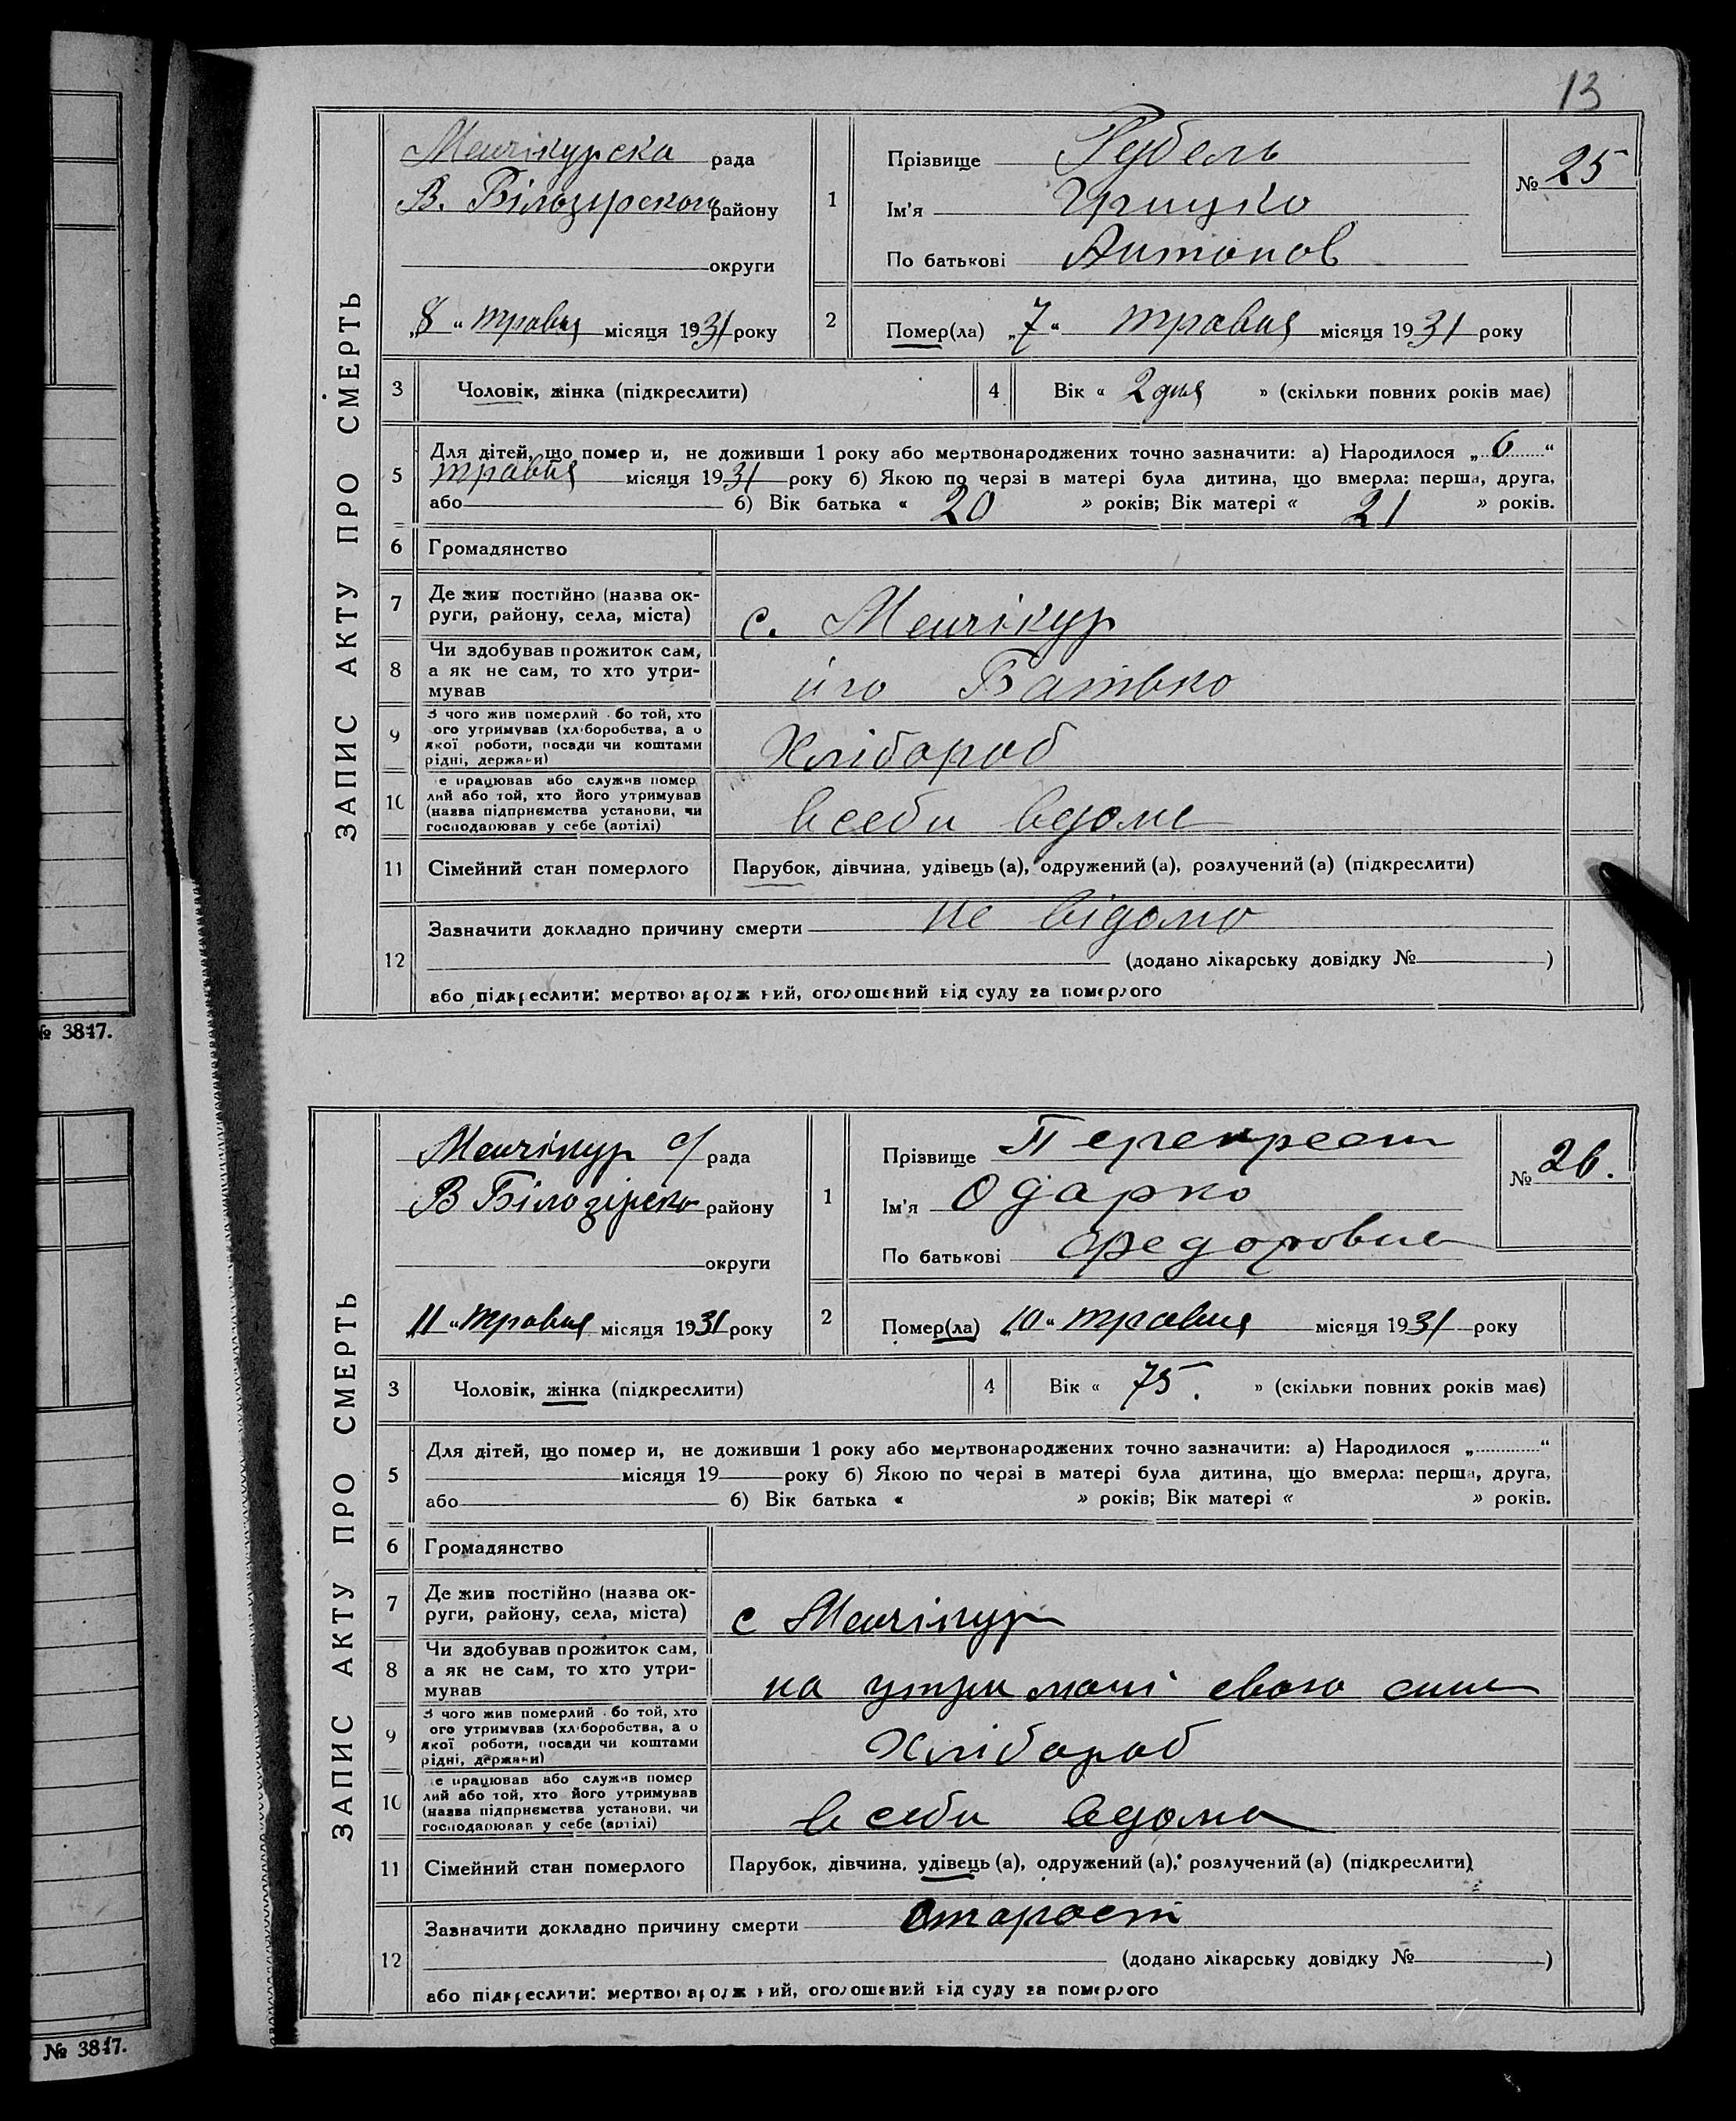 13
ЗАПИС АКТУ ПРО СМЕРТЬ
Менчікурска рада
В. Білозирского району
округи
„8“ травня місяця 1931 року
1
Прізвище Рубель
Ім'я Грицко
По батькові Антонов
№ 25
2
Помер(ла) „7“ травня місяця 1931 року
3
Чоловік, жінка (підкреслити)
4
Вік « 2 дня » (скільки повних років має)
5
Для дітей, що помер и, не доживши 1 року або мертвонароджених точно зазначити: а) Народилося „6“
травня місяця 1931 року б) Якою по черзі в матері була дитина, що вмерла: перша, друга,
або б) Вік батька « 20 » років; Вік матері « 21 » років.
6
Громадянство
7
Де жив постійно (назва ок-
руги, району, села, міста)
с. Менчікур
8
Чи здобував прожиток сам,
а як не сам, то хто утри-
мував
іго Батько
9
З чого жив померлий бо той, хто
ого утримував (хл боробства, а о
якої роботи, посади чи коштами
рідні, держави)
Хлібороб
10
е працював або служив помер
лий або той, хто його утримував
(назва підприємства установи, чи
господарював у себе (артілі)
в себи вдоме
11
Сімейний стан померлого
Парубок, дівчина, удівець (а), одружений (а), розлучений (а) (підкреслити)
12
Зазначити докладно причину смерти не відомо
(додано лікарську довідку № )
або підкреслити: мертвонароджений, оголошений від суду за померлого
№ 3847.
ЗАПИС АКТУ ПРО СМЕРТЬ
Менчікур с/ рада
В Білозірско району
округи
„11“ травня місяця 1931 року
1
Прізвище Перехрест
Ім'я Одарко
По батькові Федоровна
№ 26.
2
Помер(ла) „10“ травня місяця 1931 року
3
Чоловік, жінка (підкреслити)
4
Вік « 75. » (скільки повних років має)
5
Для дітей, що помер и, не доживши 1 року або мертвонароджених точно зазначити: а) Народилося „ “
місяця 19 року б) Якою по черзі в матері була дитина, що вмерла: перша, друга,
або б) Вік батька « » років; Вік матері « » років.
6
Громадянство
7
Де жив постійно (назва ок-
руги, району, села, міста)
с Менчікур
8
Чи здобував прожиток сам,
а як не сам, то хто утри-
мував
на утримані свого сина
9
З чого жив померлий бо той, хто
ого утримував (хл боробства, а о
якої роботи, посади чи коштами
рідні, держави)
Хлібороб
10
е працював або служив помер
лий або той, хто його утримував
(назва підприємства установи, чи
господарював у себе (артілі)
в себи вдома
11
Сімейний стан померлого
Парубок, дівчина, удівець (а), одружений (а), розлучений (а) (підкреслити)
12
Зазначити докладно причину смерти Старост
(додано лікарську довідку № )
або підкреслити: мертвонароджений, оголошений від суду за померлого
№ 3847.